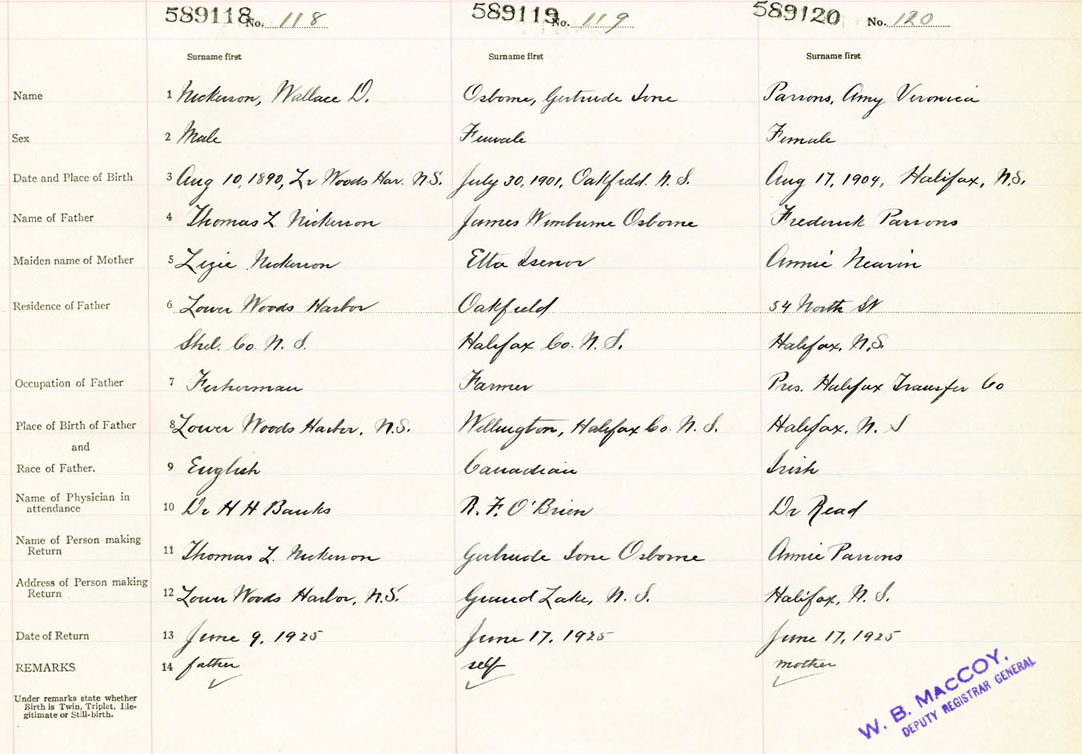 589118 No. 118 589119 No. 119 589120 No. 120
Surname first Surname first Surname first
Name 1 Nickerson, Wallace D. Osborne, Gertrude Ione Parsons, Amy Veronica
Sex 2 Male Female Female
Date and Place of Birth 3 Aug 10, 1890, Lr Woods Har. N.S. July 30, 1901, Oakfield. N.S. Aug 17, 1904, Halifax, N.S.
Name of Father 4 Thomas L Nickerson James Wimburne Osborne Frederick Parsons
Maiden name of Mother 5 Lizie Nickerson Etta Isenor Annie Nearin
Residence of Father 6 Lower Woods Harbor Oakfield 54 North St
Shel. Co. N.S. Halifax Co. N.S. Halifax, N.S.
Occupation of Father 7 Fisherman Farmer Pres. Halifax Transfer Co
Place of Birth of Father 8 Lower Woods Harbor, N.S. Wellington, Halifax Co. N.S. Halifax, N.S
and
Race of Father. 9 English Canadian Irish
Name of Physician in
attendance 10 Dr H H Banks R. F. O'Brien Dr Read
Name of Person making
Return 11 Thomas L. Nickerson Gertrude Ione Osborne Annie Parsons
Address of Person making
Return 12 Lower Woods Harbor, N.S. Grand Lake, N.S. Halifax, N.S.
Date of Return 13 June 9, 1925 June 17, 1925 June 17, 1925
REMARKS 14 father self mother
Under remarks state whether
Birth is Twin, Triplet, Ille-
gitimate or Still-birth.
W. B. MACCOY,
DEPUTY REGISTRAR GENERAL